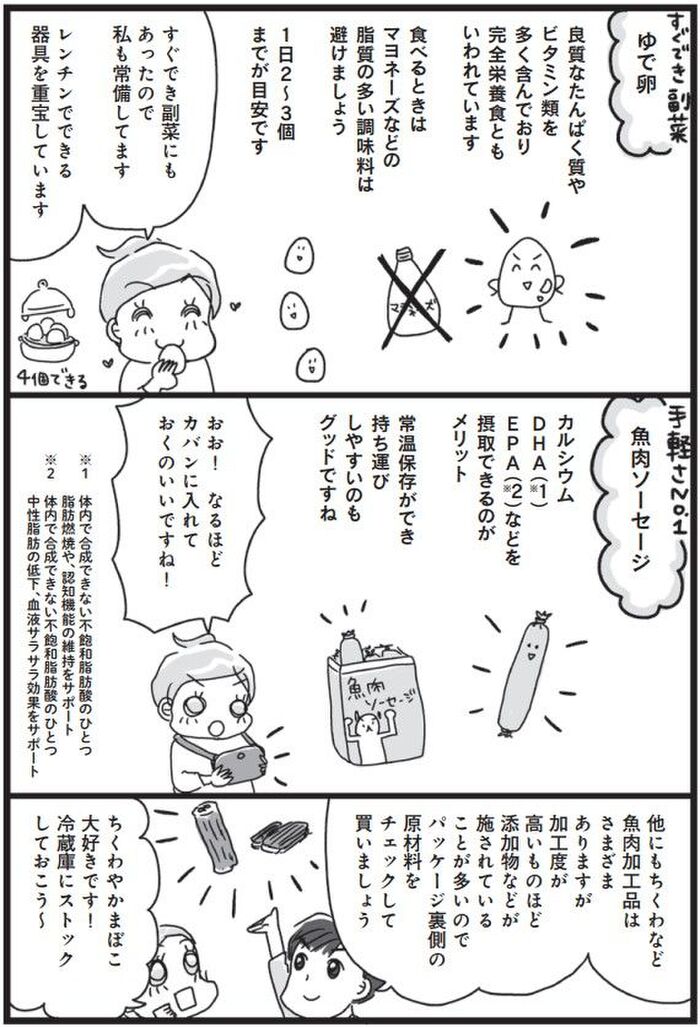 すぐでき副菜
ゆで卵
良質なたんぱく質や
ビタミン類を
多く含んでおり
完全栄養食とも
いわれています
食べるときは
マヨネーズなどの
脂質の多い調味料は
避けましょう
1日2~3個
までが目安です
マヨネーズ
すぐでき副菜にも
あったので
私も常備してます
レンチンでできる
器具を重宝しています
4個できる
手軽さNo.1
魚肉ソーセージ
カルシウム
DHA(※1)
EPA(※2)などを
摂取できるのが
メリット
常温保存ができ
持ち運び
しやすいのも
グッドですね
魚肉
ソーセージ
おお! なるほど
カバンに入れて
おくのいいですね!
※1 体内で合成できない不飽和脂肪酸のひとつ
脂肪燃焼や、認知機能の維持をサポート
※2 体内で合成できない不飽和脂肪酸のひとつ
中性脂肪の低下、血液サラサラ効果をサポート
他にもちくわなど
魚肉加工品は
さまざま
ありますが
加工度が
高いものほど
添加物などが
施されている
ことが多いので
パッケージ裏側の
原材料を
チェックして
買いましょう
ちくわやかまぼこ
大好きです!
冷蔵庫にストック
しておこう~